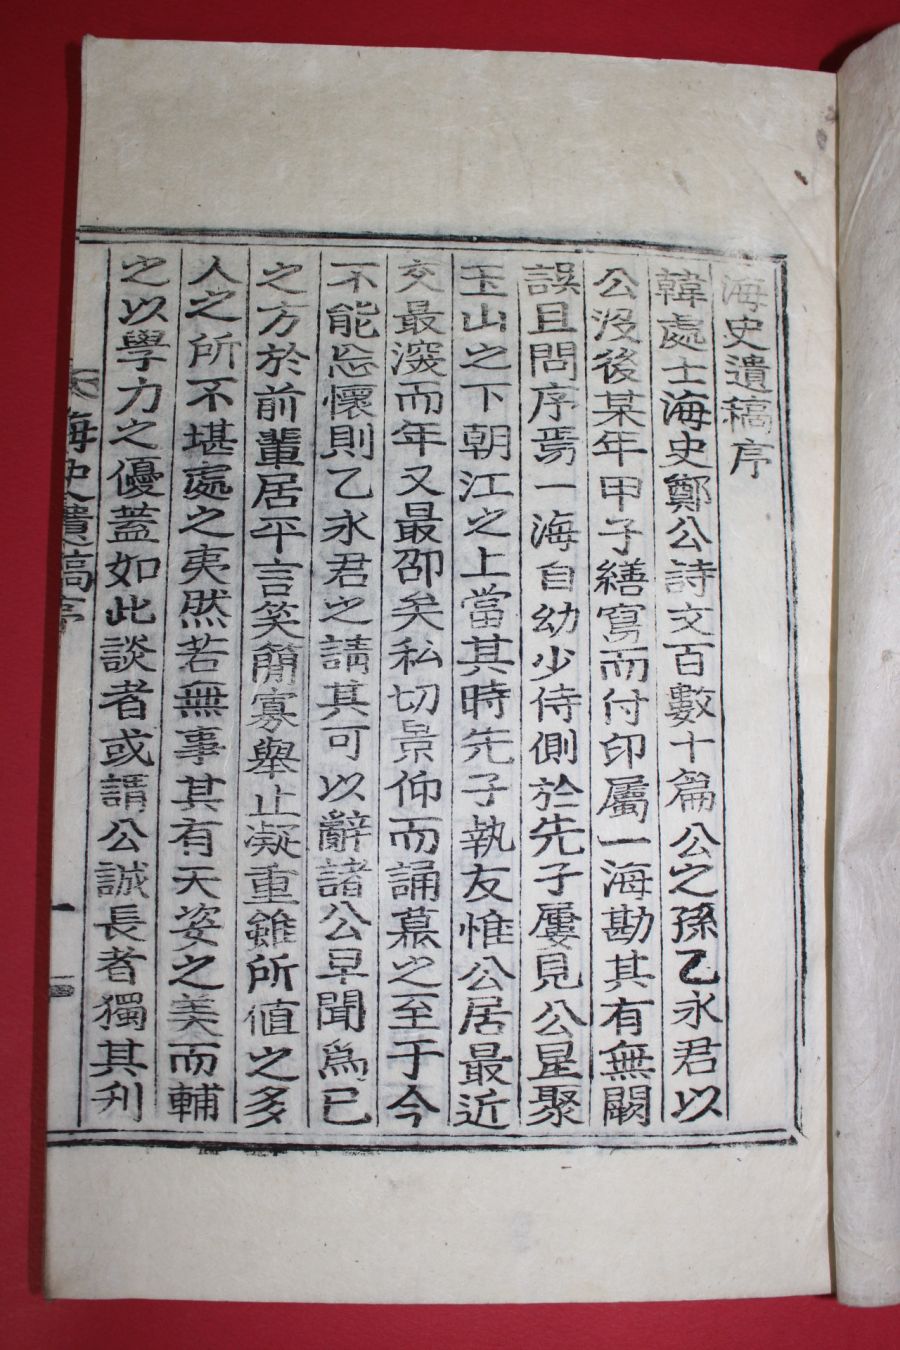 海史遺稿序
韓處士海史鄭公詩文百數十篇公之孫乙永君以
公沒後某年甲子繕寫而付印屬一海勘其有無闕
誤且問序焉一海自幼少侍側於先子屢見公星聚
玉山之下朝江之上當其時先子執友惟公居最近
交最深而年又最卲矣私切景仰而誦慕之至于今
不能忘懷則乙永君之請其可以辭諸公早聞爲己
之方於前輩居平言笑簡寡舉止凝重雖所値之多
人之所不堪處之夷然若無事其有天姿之美而輔
之以學力之優蓋如此談者或謂公誠長者獨其刋
海史遺稿序
一